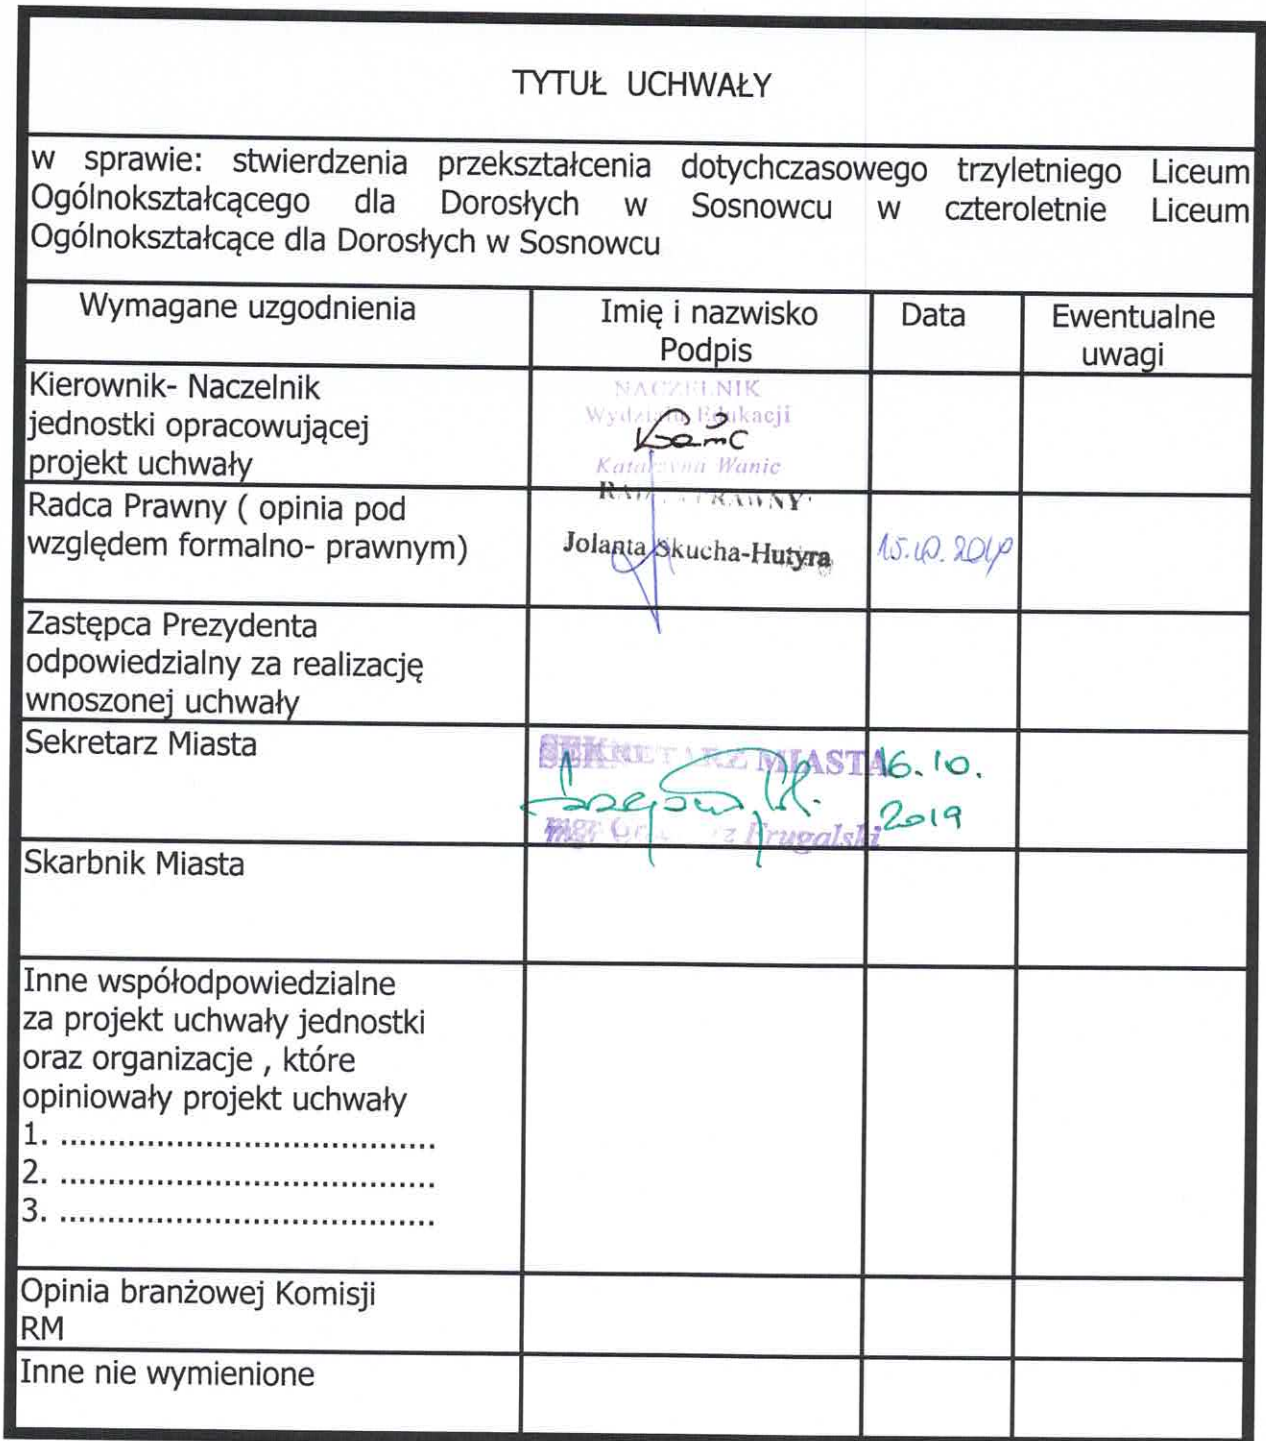 TYTUŁ UCHWAŁY
w sprawie: stwierdzenia przekształcenia dotychczasowego trzyletniego Liceum
Ogólnokształcącego dla Dorosłych w Sosnowcu w czteroletnie Liceum
Ogólnokształcące dla Dorosłych w Sosnowcu
Wymagane uzgodnienia
Imię i nazwisko
Podpis
Data
Ewentualne
uwagi
Kierownik- Naczelnik
jednostki opracowującej
projekt uchwały
NACZELNIK
Wydziału Edukacji
Katarzyna Wanic
Radca Prawny ( opinia pod
względem formalno- prawnym)
RADCA PRAWNY
Jolanta Skucha-Hutyra
15.10.2019
Zastępca Prezydenta
odpowiedzialny za realizację
wnoszonej uchwały
Sekretarz Miasta
SEKRETARZ MIASTA
mgr Grzegorz Frugalski
16.10.
2019
Skarbnik Miasta
Inne współodpowiedzialne
za projekt uchwały jednostki
oraz organizacje , które
opiniowały projekt uchwały
1. .......................................
2. .......................................
3. .......................................
Opinia branżowej Komisji
RM
Inne nie wymienione